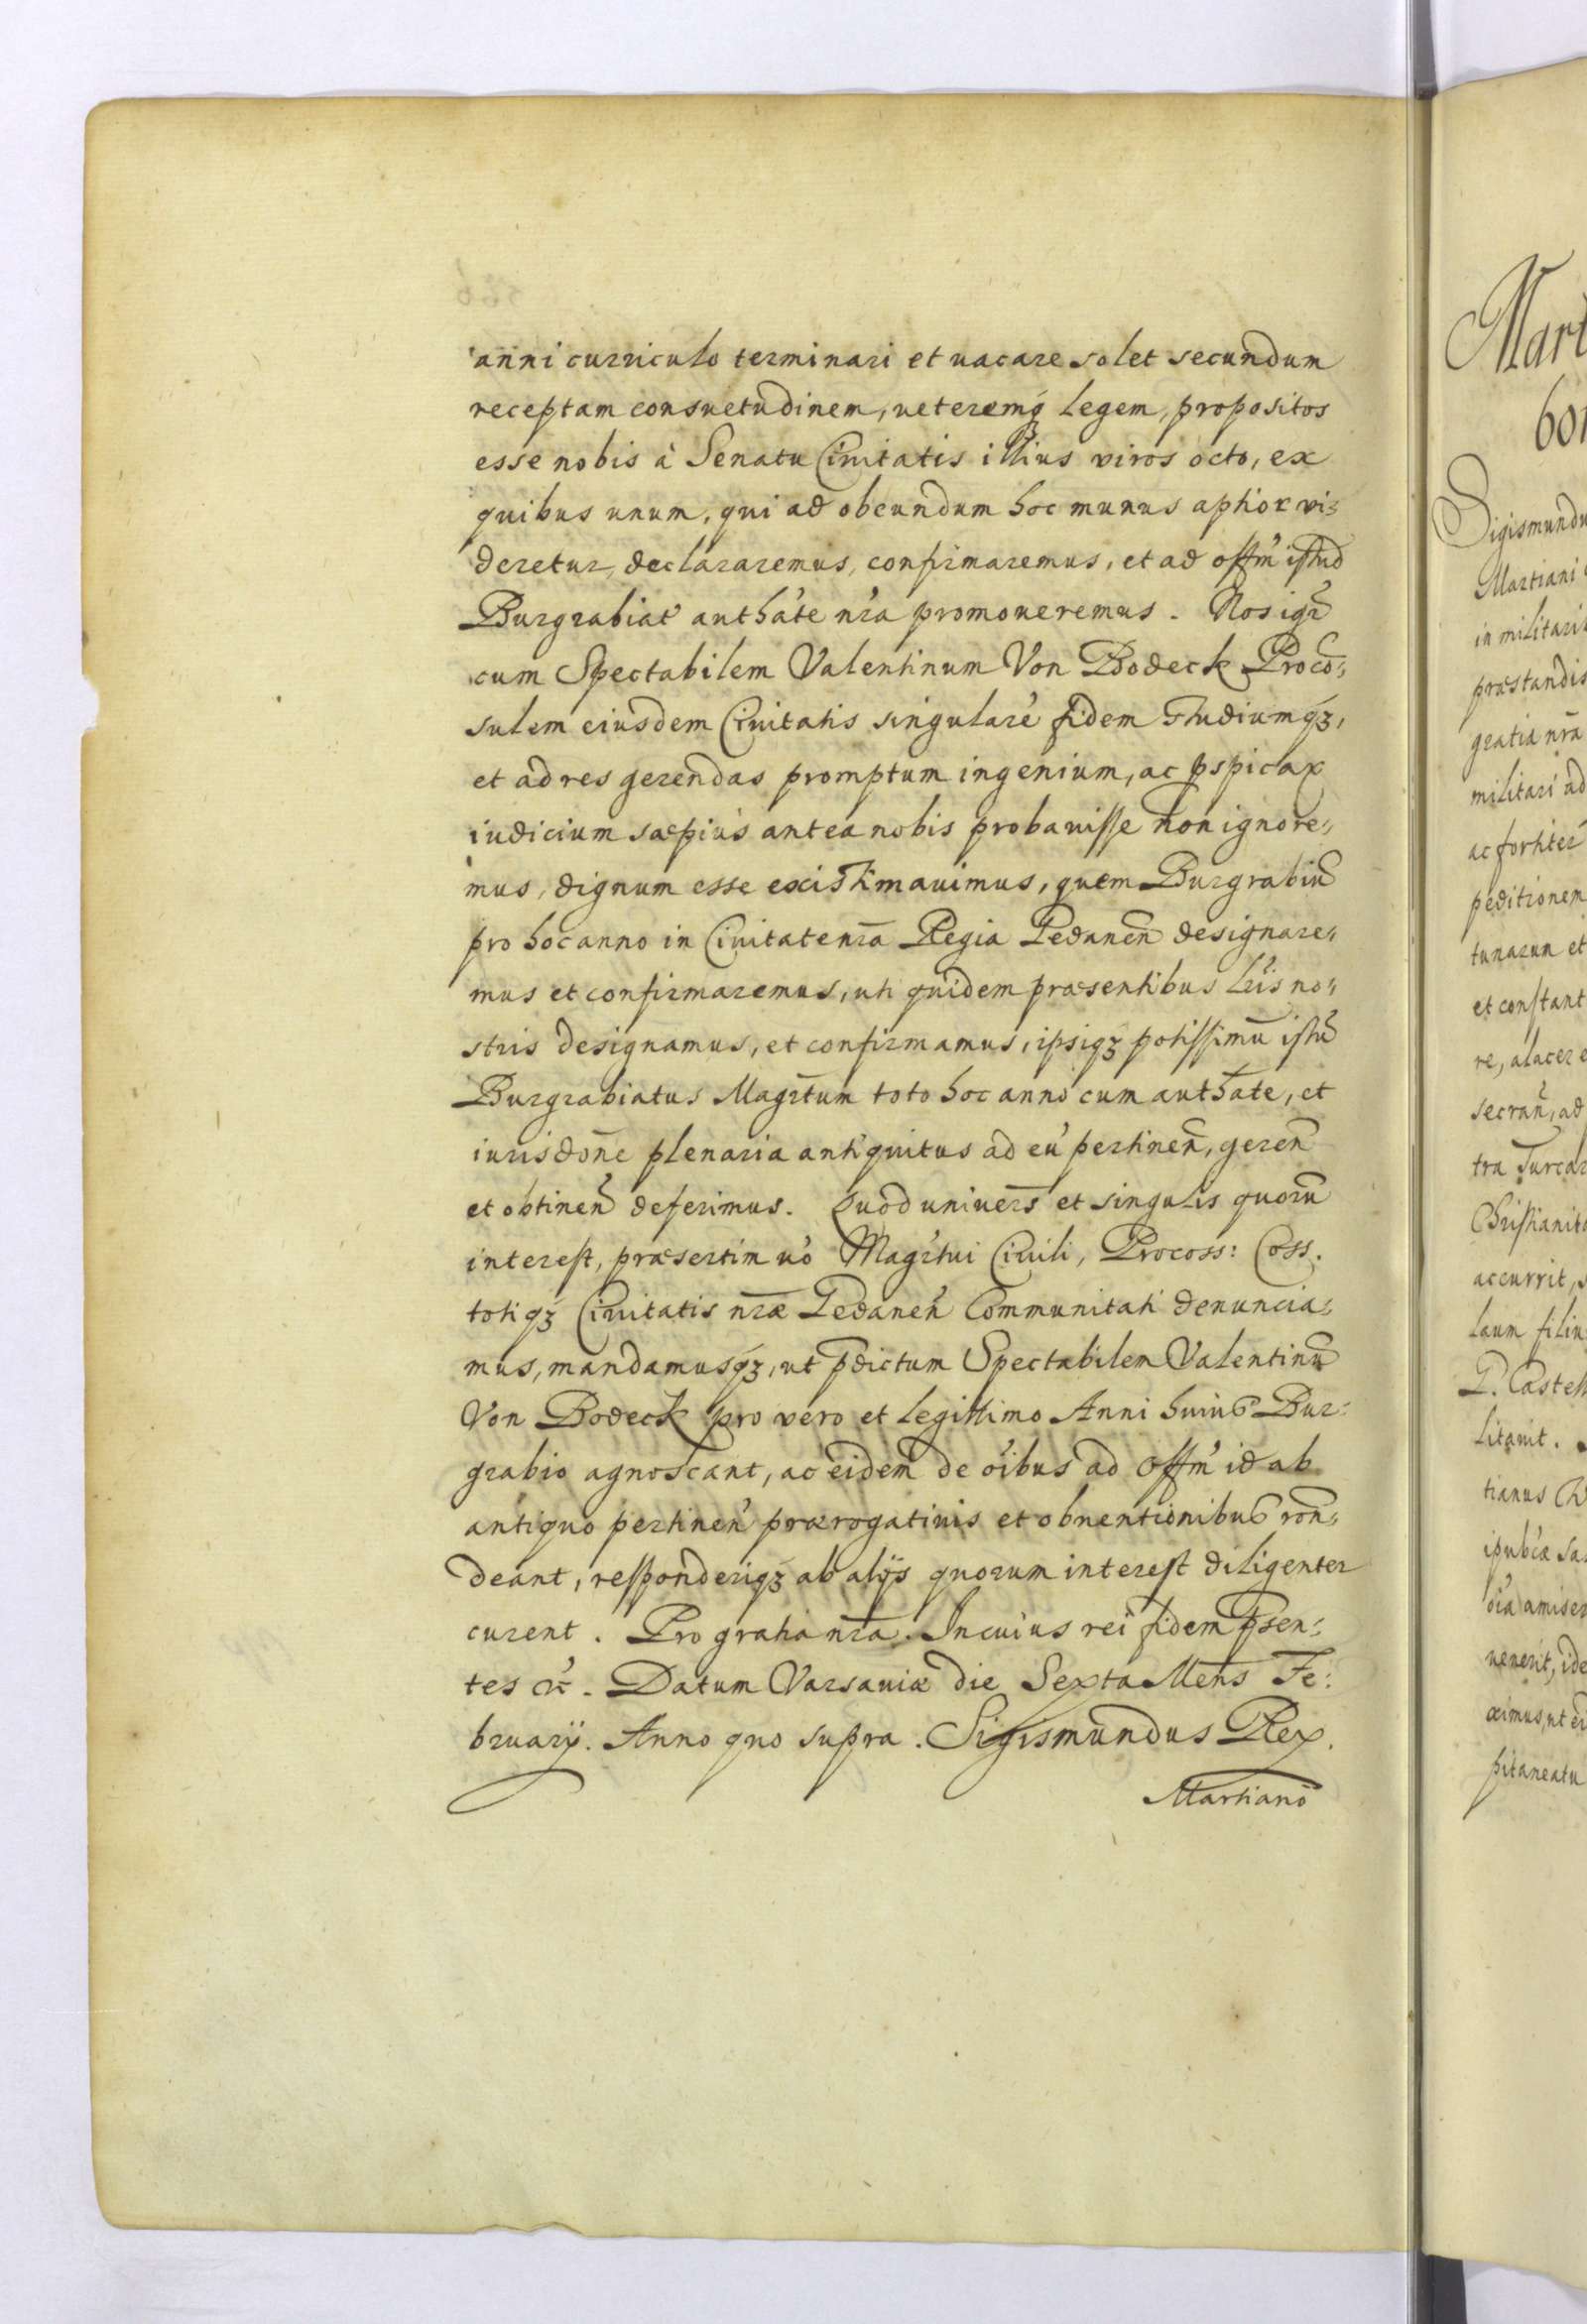 anni curriculo terminari et uacare solet secundum
receptam consuetudinem, ueteremq́ legem, propositos
esse nobis à Senatu Ciuitatis illius viros octo, ex
quibus unum, qui ad obeundum hoc munus aptior vi⸗
deretur, declararemus, confirmaremus, et ad offm̃ istud
Burgrabiat' authãte nr̃a promoueremus. Nos igr̃
cum Spectabilem Valentinum Von Bodeck Procõ⸗
sulem eiusdem Ciuitatis singularẽ fidem studiumqꝫ,
et ad res gerendas promptum ingenium, ac ꝑspicax
iudicium sæpius antea nobis probauisse non ignore⸗
mus, dignum esse existimauimus, quem Burgrabiũ
pro hoc anno in Ciuitate nr̃a Regia Gedaneñ designare⸗
mus et confirmaremus, uti quidem præsentibus lr̃is no⸗
stris designamus, et confirmamus, ipsiqꝫ potissimũ istũ
Burgrabiatus Magr̃tum toto hoc anno cum authãte, et
iurisdoñe plenaria antiquitus ad eũ pertineñ, gereñ
et obtineñ deferimus. Quod uniuers̃ et singulis quorũ
interest, præsertim uõ Magr̃tui Ciuili, Procoss: Coss.
totiqꝫ Ciuitatis nr̃æ Gedaneñ Communitati denuncia⸗
mus, mandamusqꝫ, ut p̃dictum Spectabilem Valentinũ
Von Bodeck pro vero et legittimo Anni huius Bur⸗
grabio agnoscant, ac eidem de oĩbus ad Offm̃ id ab
antiquo pertineñ prærogatiuis et obuentionibus roñ⸗
deant, responderiqꝫ ab alijs quorum interest diligenter
curent. Pro gratia nr̃a. In cuius rei fidem p̃sen⸗
tes &c. Datum Varsauiæ die Sexta Mens̃ Fe:
bruarij. Anno quo supra. Sigismundus Rex.
Martiano
Mart
bor
Sigismundu
Martiani
in militari
præstandis
gratia nr̃a
militari ad
ac fortiter
peditionem
tunarum et
et constant
re, alacer e
secrañ, ad
tra Turcar
Christianita
accurrit, s
laum filiu
G. Castell
litauit.
tianus W
ipubcæ sa
oĩa amiser
uenerit, ide
ximus, ut ei
pitaneatu